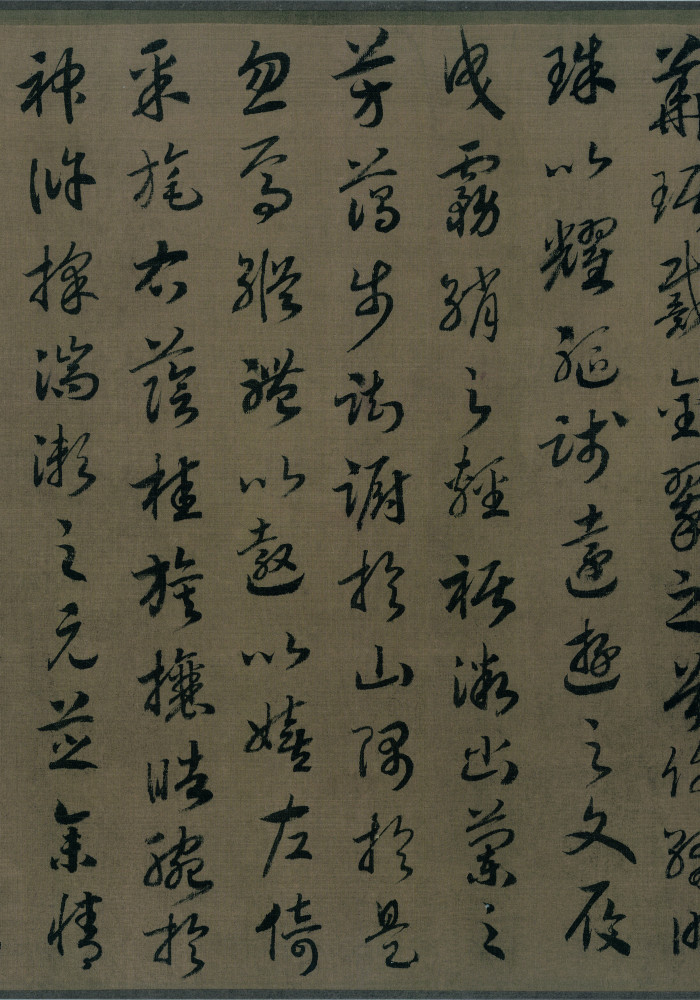 華琚戴金翠之首飾綴明
珠以耀軀踐遠遊之文履
曳霧綃之輕裾微幽蘭之
芳藹步踟躕於山隅於是
忽焉縱體以遨以嬉左倚
采旄右蔭桂旗攘皓腕於
神滸採湍瀨之元芝余情